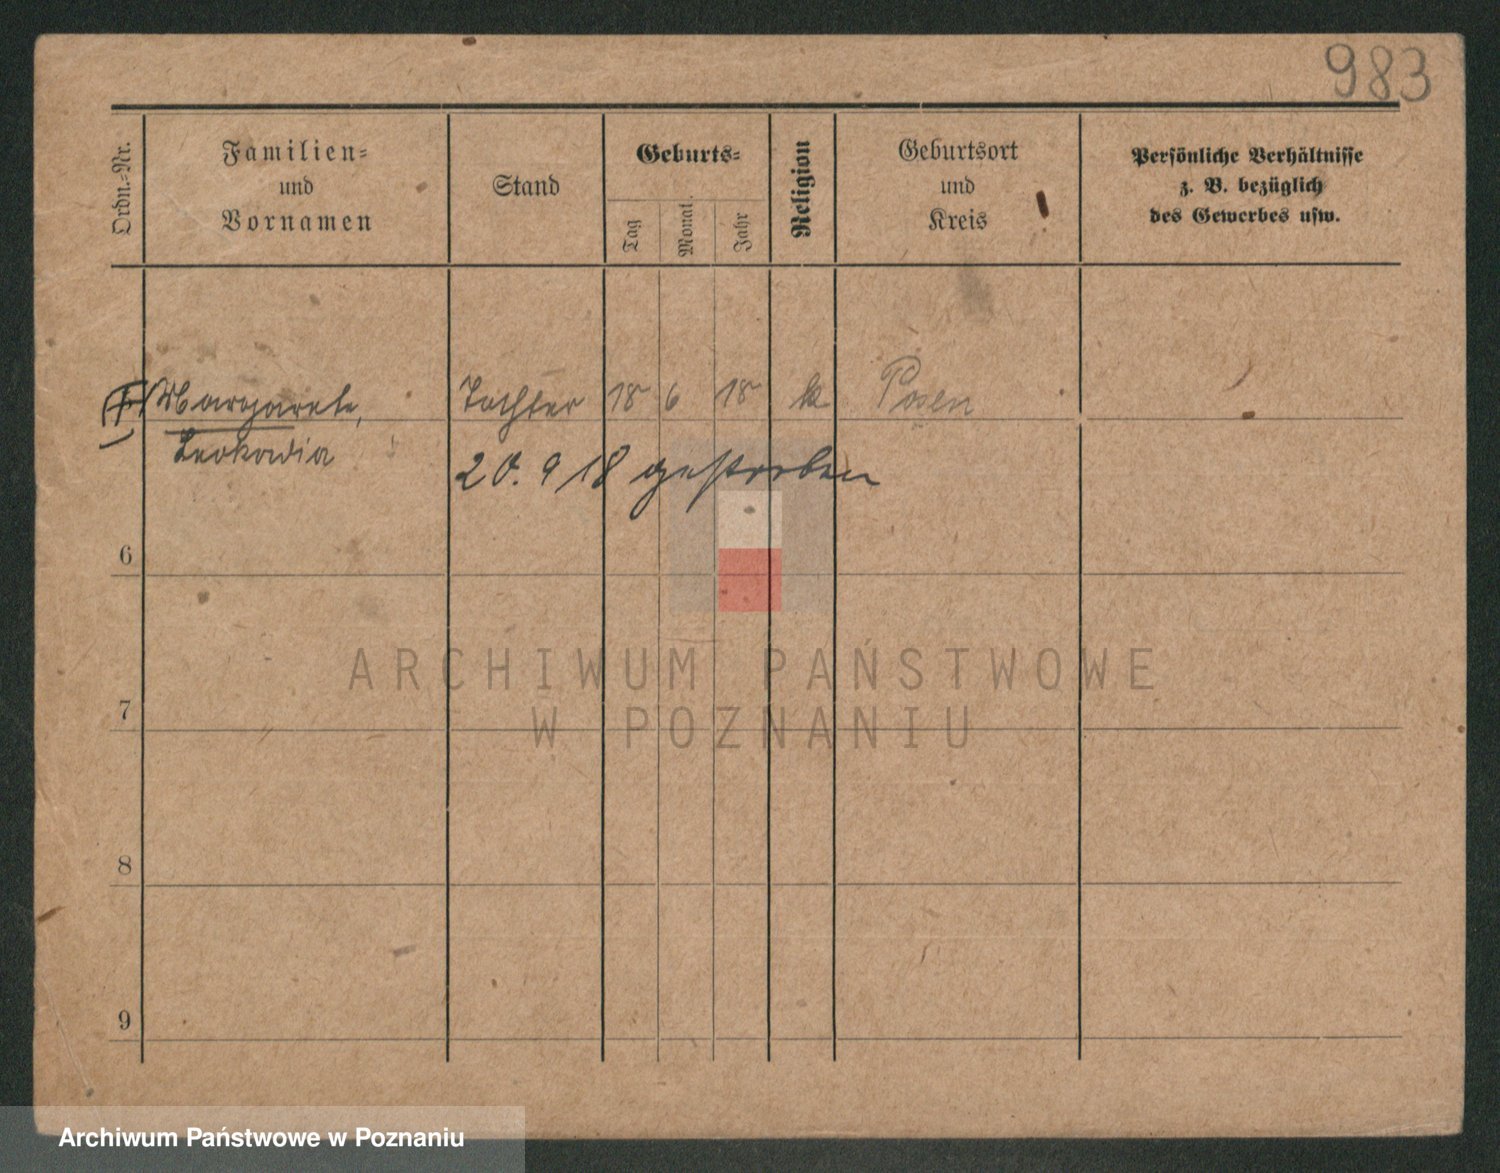 983
Ordn.-Nr.
Familien-
und
Vornamen
Stand
Geburts-
Tag
Monat.
Jahr
Religion
Geburtsort
und
Kreis
Persönliche Verhältnisse
z. B. bezüglich
des Gewerbes usw.
Margarete, Tochter 18 6 18 k Posen
Leokadia
20. 9 18 gestorben
6
7
8
9
ARCHIWUM PAŃSTWOWE
W POZNANIU
Archiwum Państwowe w Poznaniu